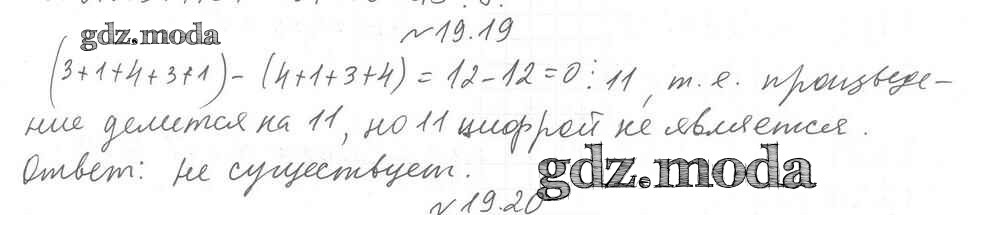 №19.19
gdz.moda
(3+1+4+3+1) - (4+1+3+4) = 12-12=0⋮11, т.е. произведе-
ние делится на 11, но 11 цифрой не является.
Ответ: не существует.
gdz.moda
№19.20